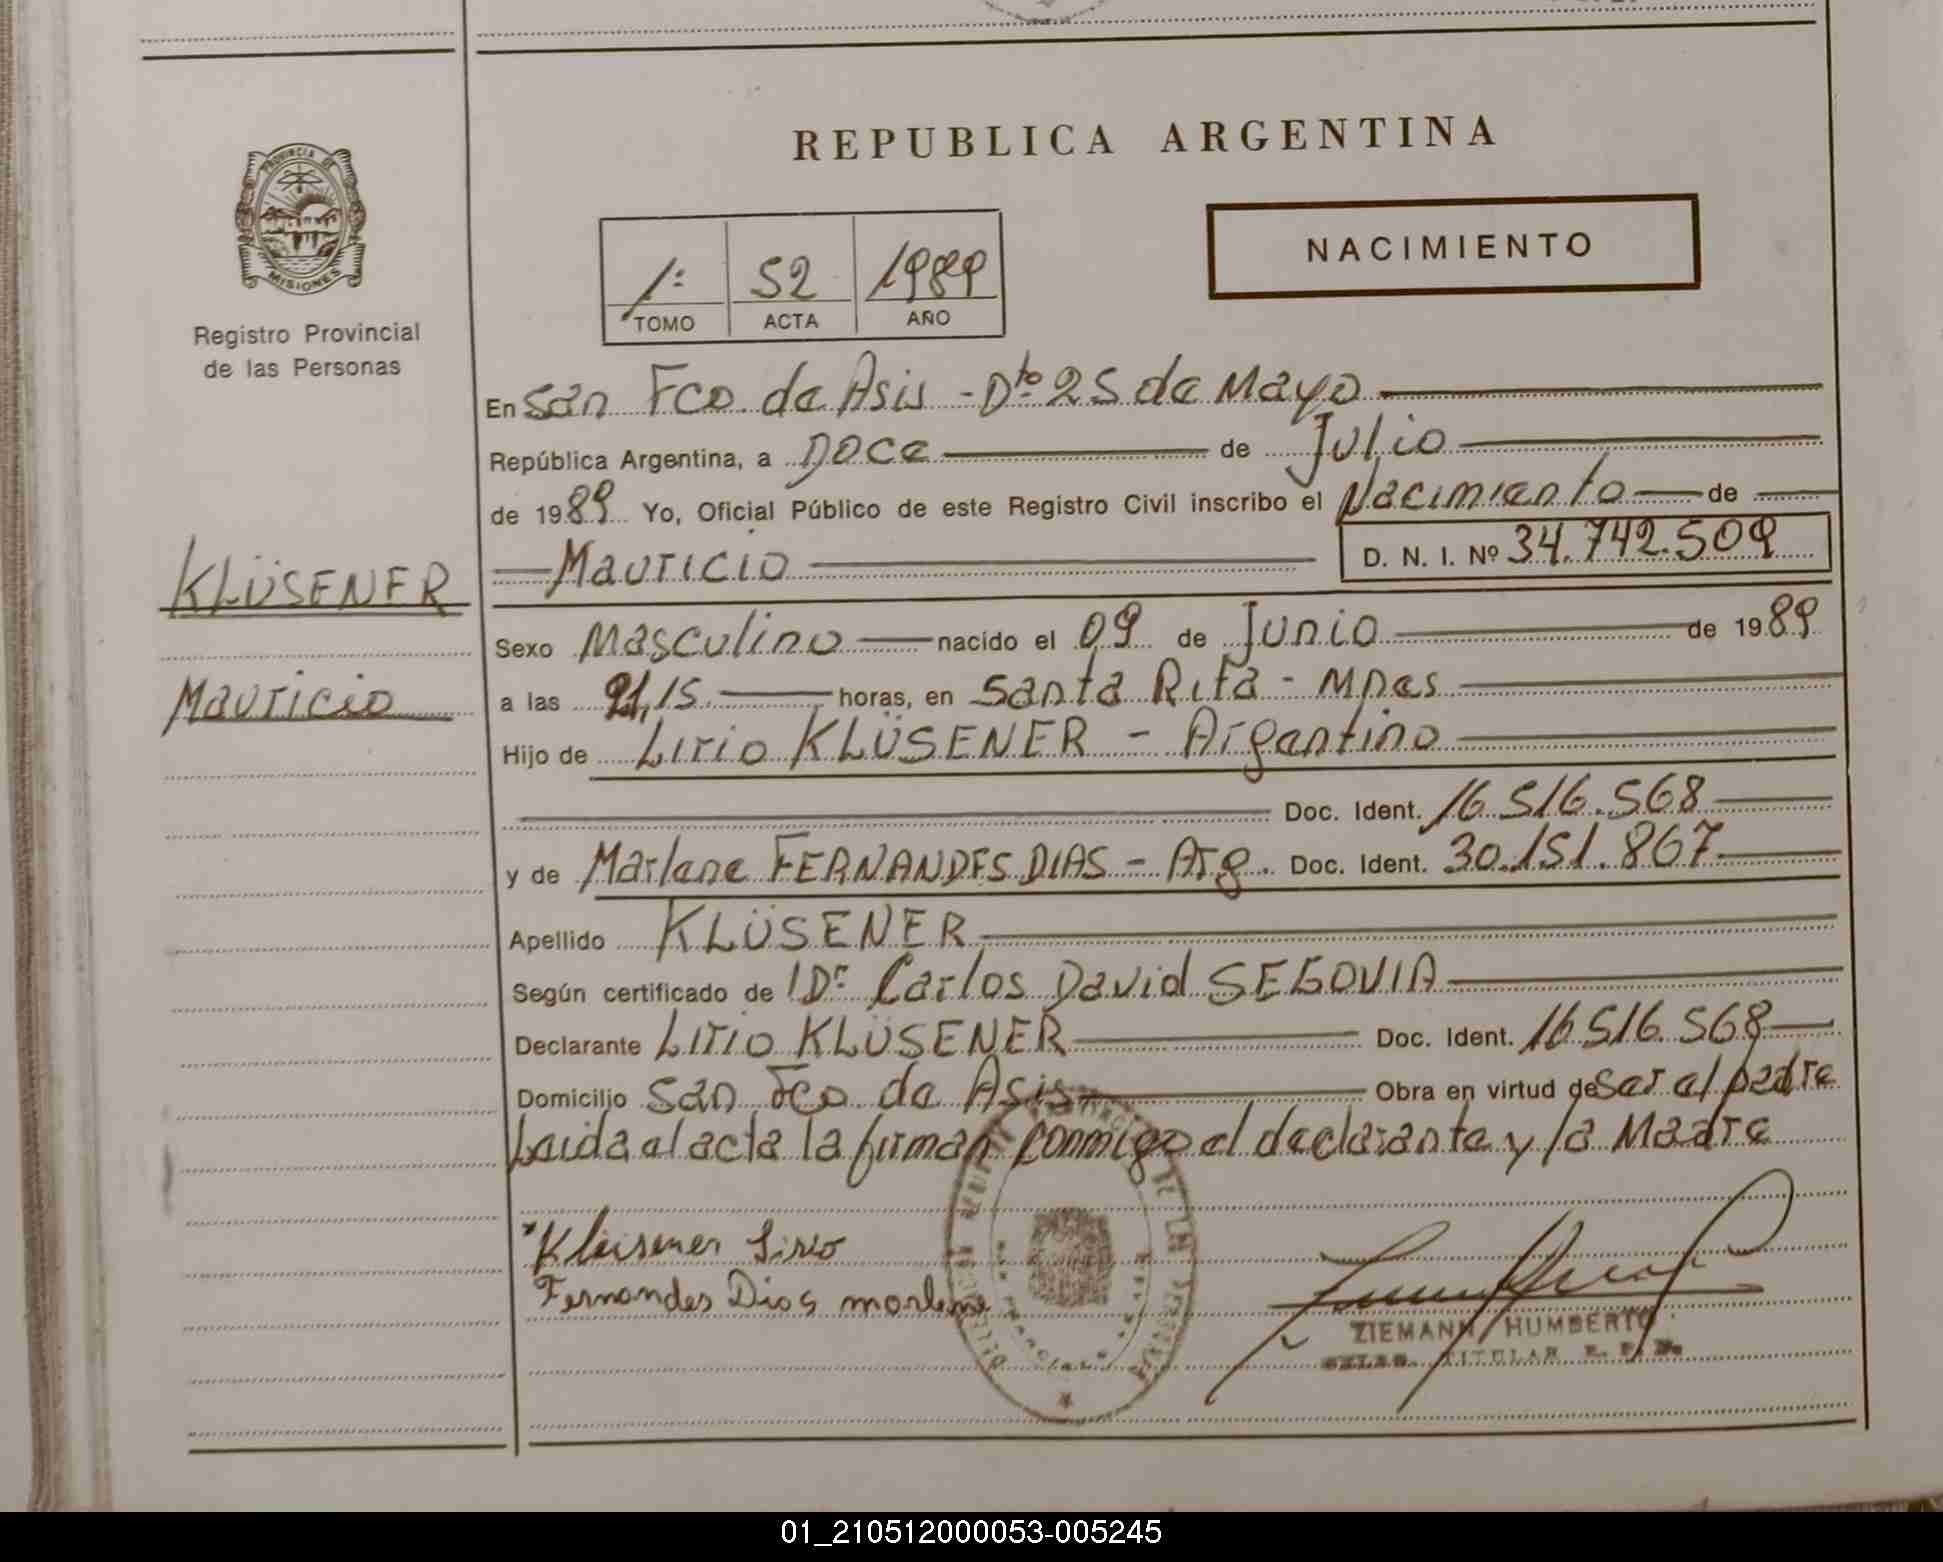 PROVINCIA DE
MISIONES
Registro Provincial
de las Personas
KLÜSENER
Mauricio
REPUBLICA ARGENTINA
1º 52 1989
TOMO ACTA AÑO
NACIMIENTO
En San Fco. de Asis - Dto. 25 de Mayo
República Argentina, a Doce de Julio
de 1989 Yo, Oficial Público de este Registro Civil inscribo el Nacimiento de
Mauricio D. N. I. Nº 34.742.509
Sexo Masculino nacido el 09 de Junio de 1989
a las 21,15 horas, en Santa Rita - Mnes
Hijo de Lirio KLÜSENER - Argentino
Doc. Ident. 16.516.568
y de Marlene FERNANDES DIAS - Arg. Doc. Ident. 30.151.867
Apellido KLÜSENER
Según certificado de Dr. Carlos David SEGOVIA
Declarante Lirio KLÜSENER Doc. Ident. 16.516.568
Domicilio San Fco de Asis Obra en virtud de ser el padre
Leida el acta la firman conmigo el declarante y la Madre
Klüsener Lirio
Fernandes Dias marlene
ZIEMANN HUMBERTO
TITULAR
01_210512000053-005245